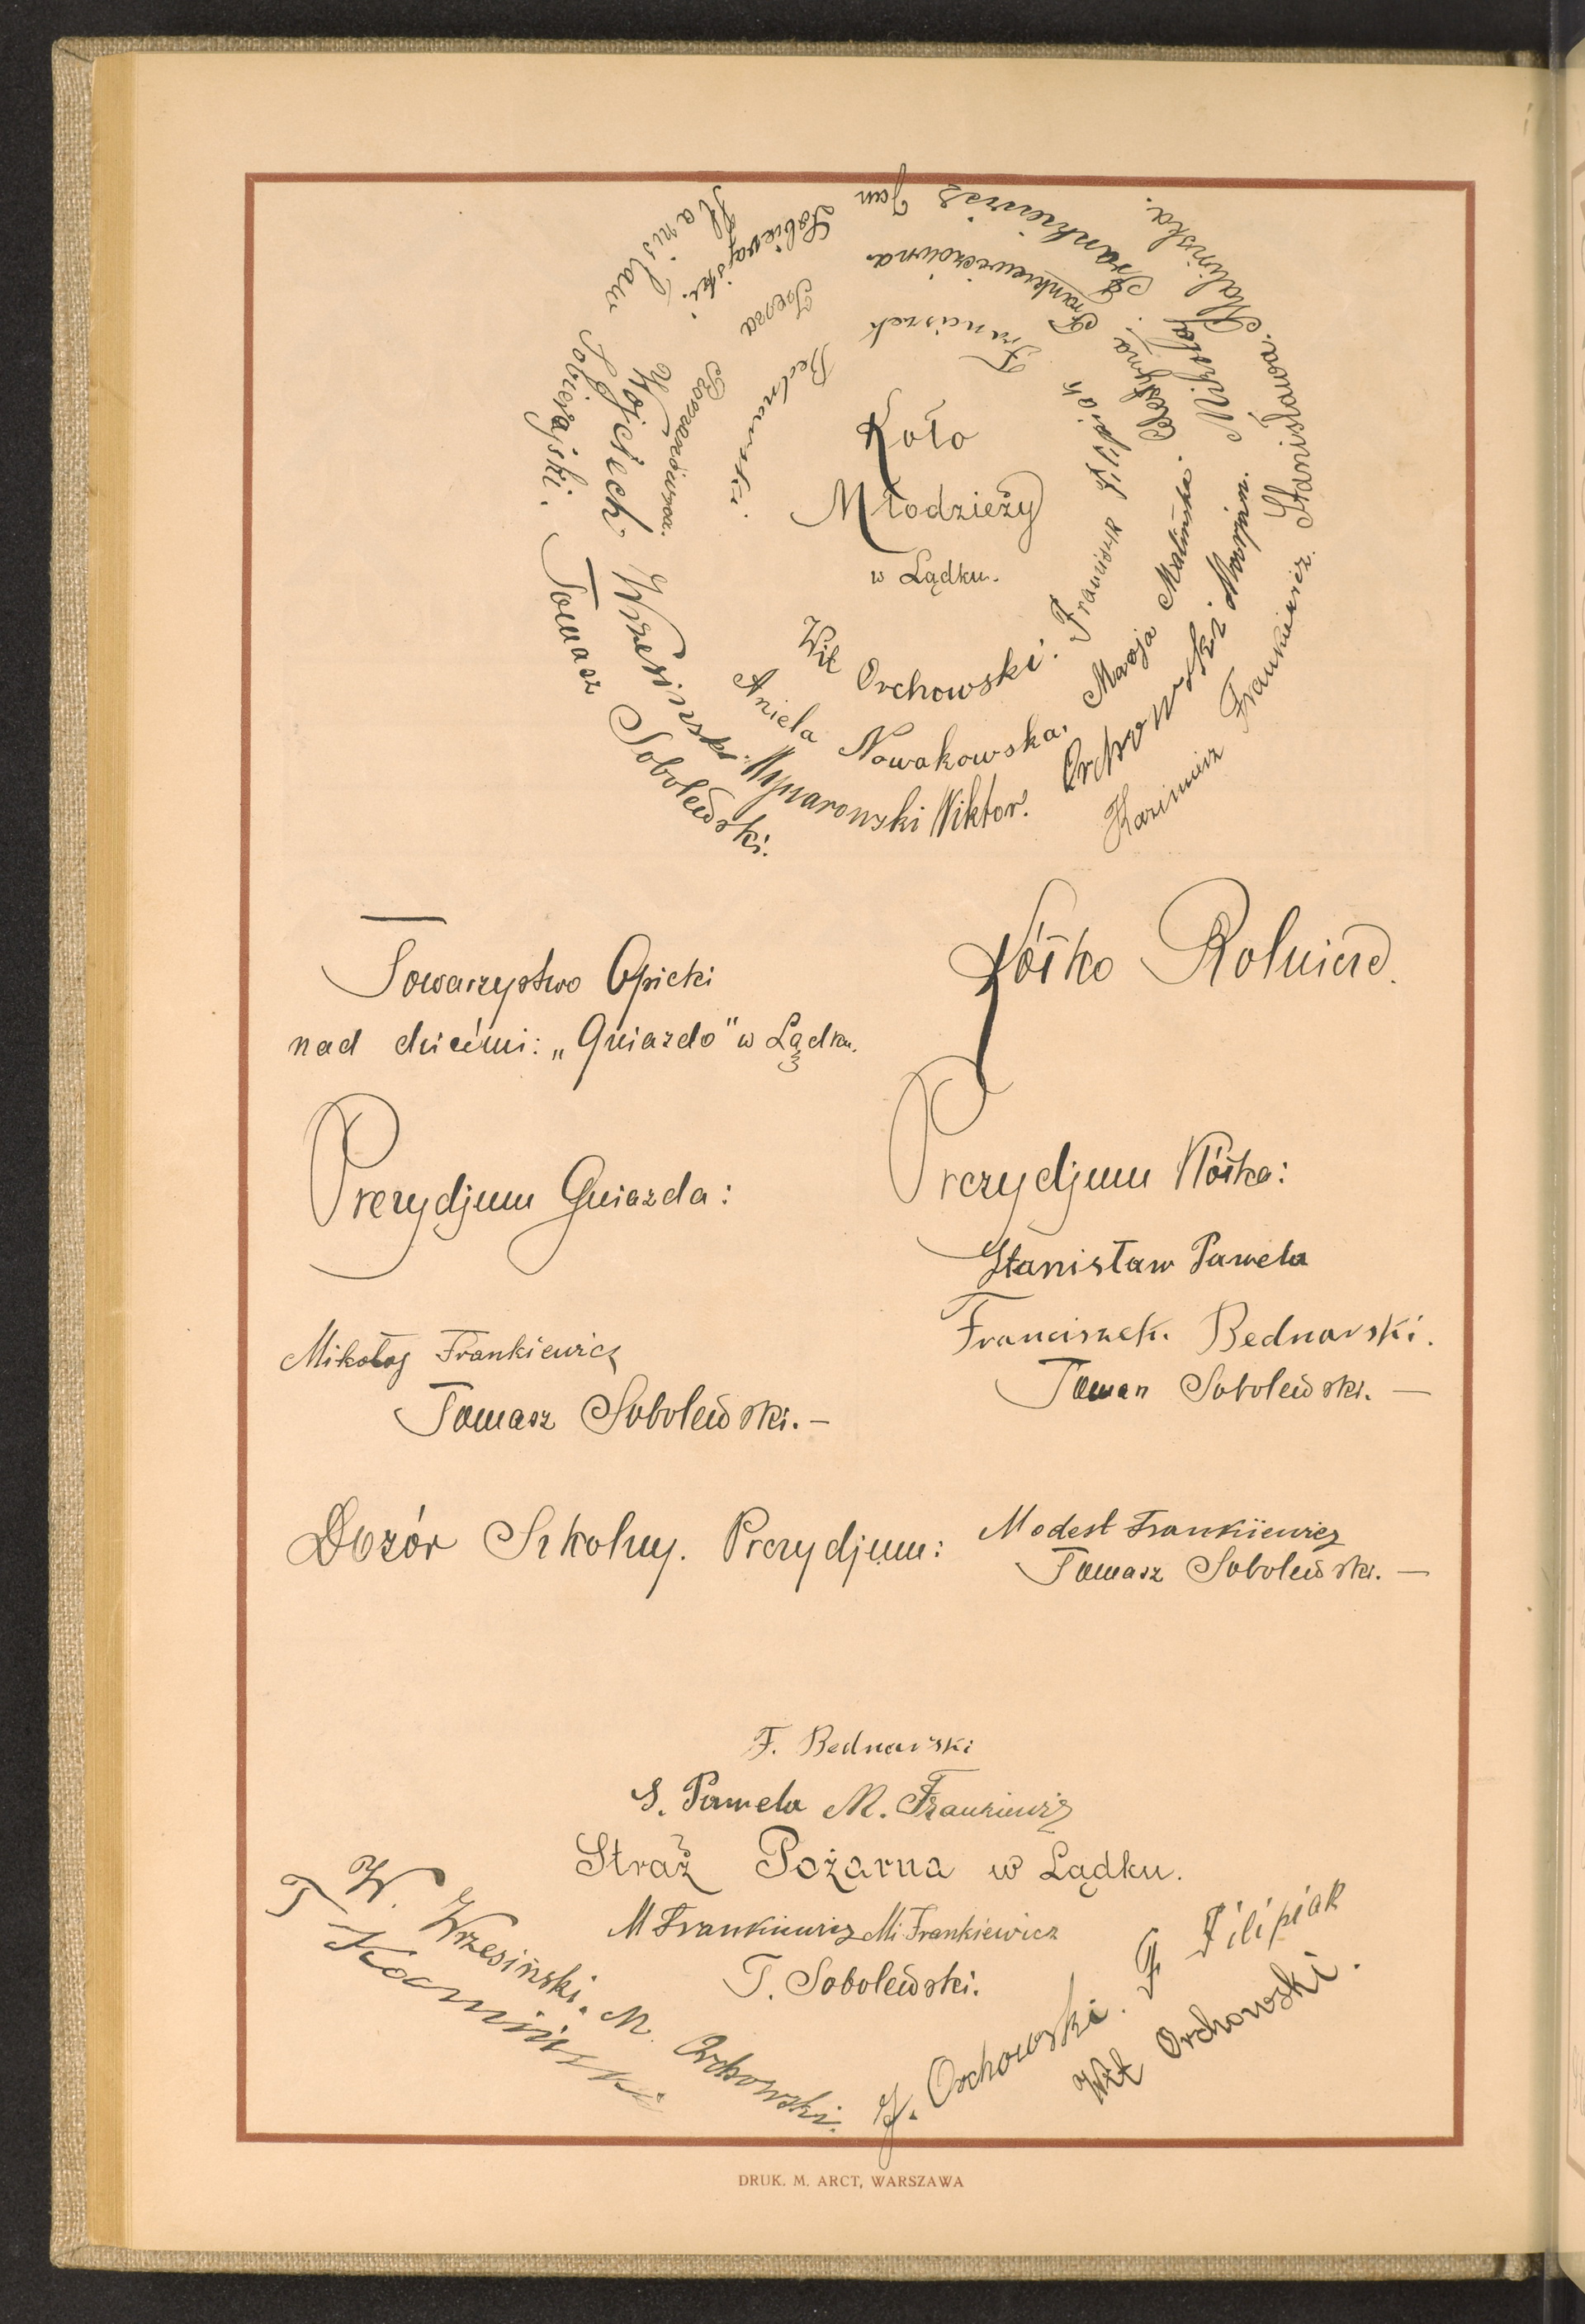 Koło
Młodzieży
w Lądku.
Wił Orchowski.
Franciszek Filipiak
Franciszek Bednarski.
Aniela Nowakowska.
Marja Malińska.
Celestyna Frankiewiczówna.
Wojciech Wrzesiński.
Wiktor.
Orchowski Marjan.
Mikołaj Frankiewicz
Jan Sobierajski.
Stanisław Sobierajski.
Tomasz Sobolewski.
Kazimierz Frankiewicz.
Stanisława Malińska.
Towarzystwo Opieki
nad dziećmi: „Gniazdo" w Lądku.
Prezydjum Gniazda:
Mikołaj Frankiewicz
Tomasz Sobolewski. —
Kółko Rolnicze.
Prezydjum Kółka:
Stanisław Pawela
Franciszek Bednarski.
Tomasz Sobolewski. —
Dozór Szkolny. Prezydjum:
Modest Frankiewicz
Tomasz Sobolewski. —
F. Bednarski
S. Pawela M. Frankiewicz
Straż Pożarna w Lądku.
M Frankiewicz Mi Frankiewicz
T. Sobolewski.
W. Wrzesiński. M. Orchowski.
T. Kamiński
J. Orchowski. F Filipiak
Wił Orchowski.
DRUK. M. ARCT, WARSZAWA